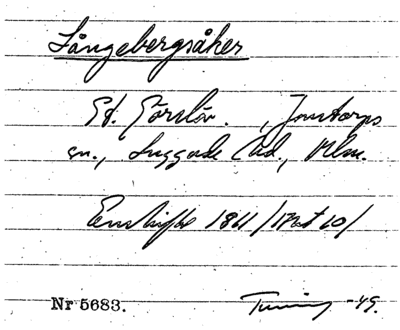 Långebergsåker
St. Görslöv. , Jonstorps
sn., Luggude hd., Mlm.
Enskifte 1811 /Akt 10/
Nr 5683. -49.